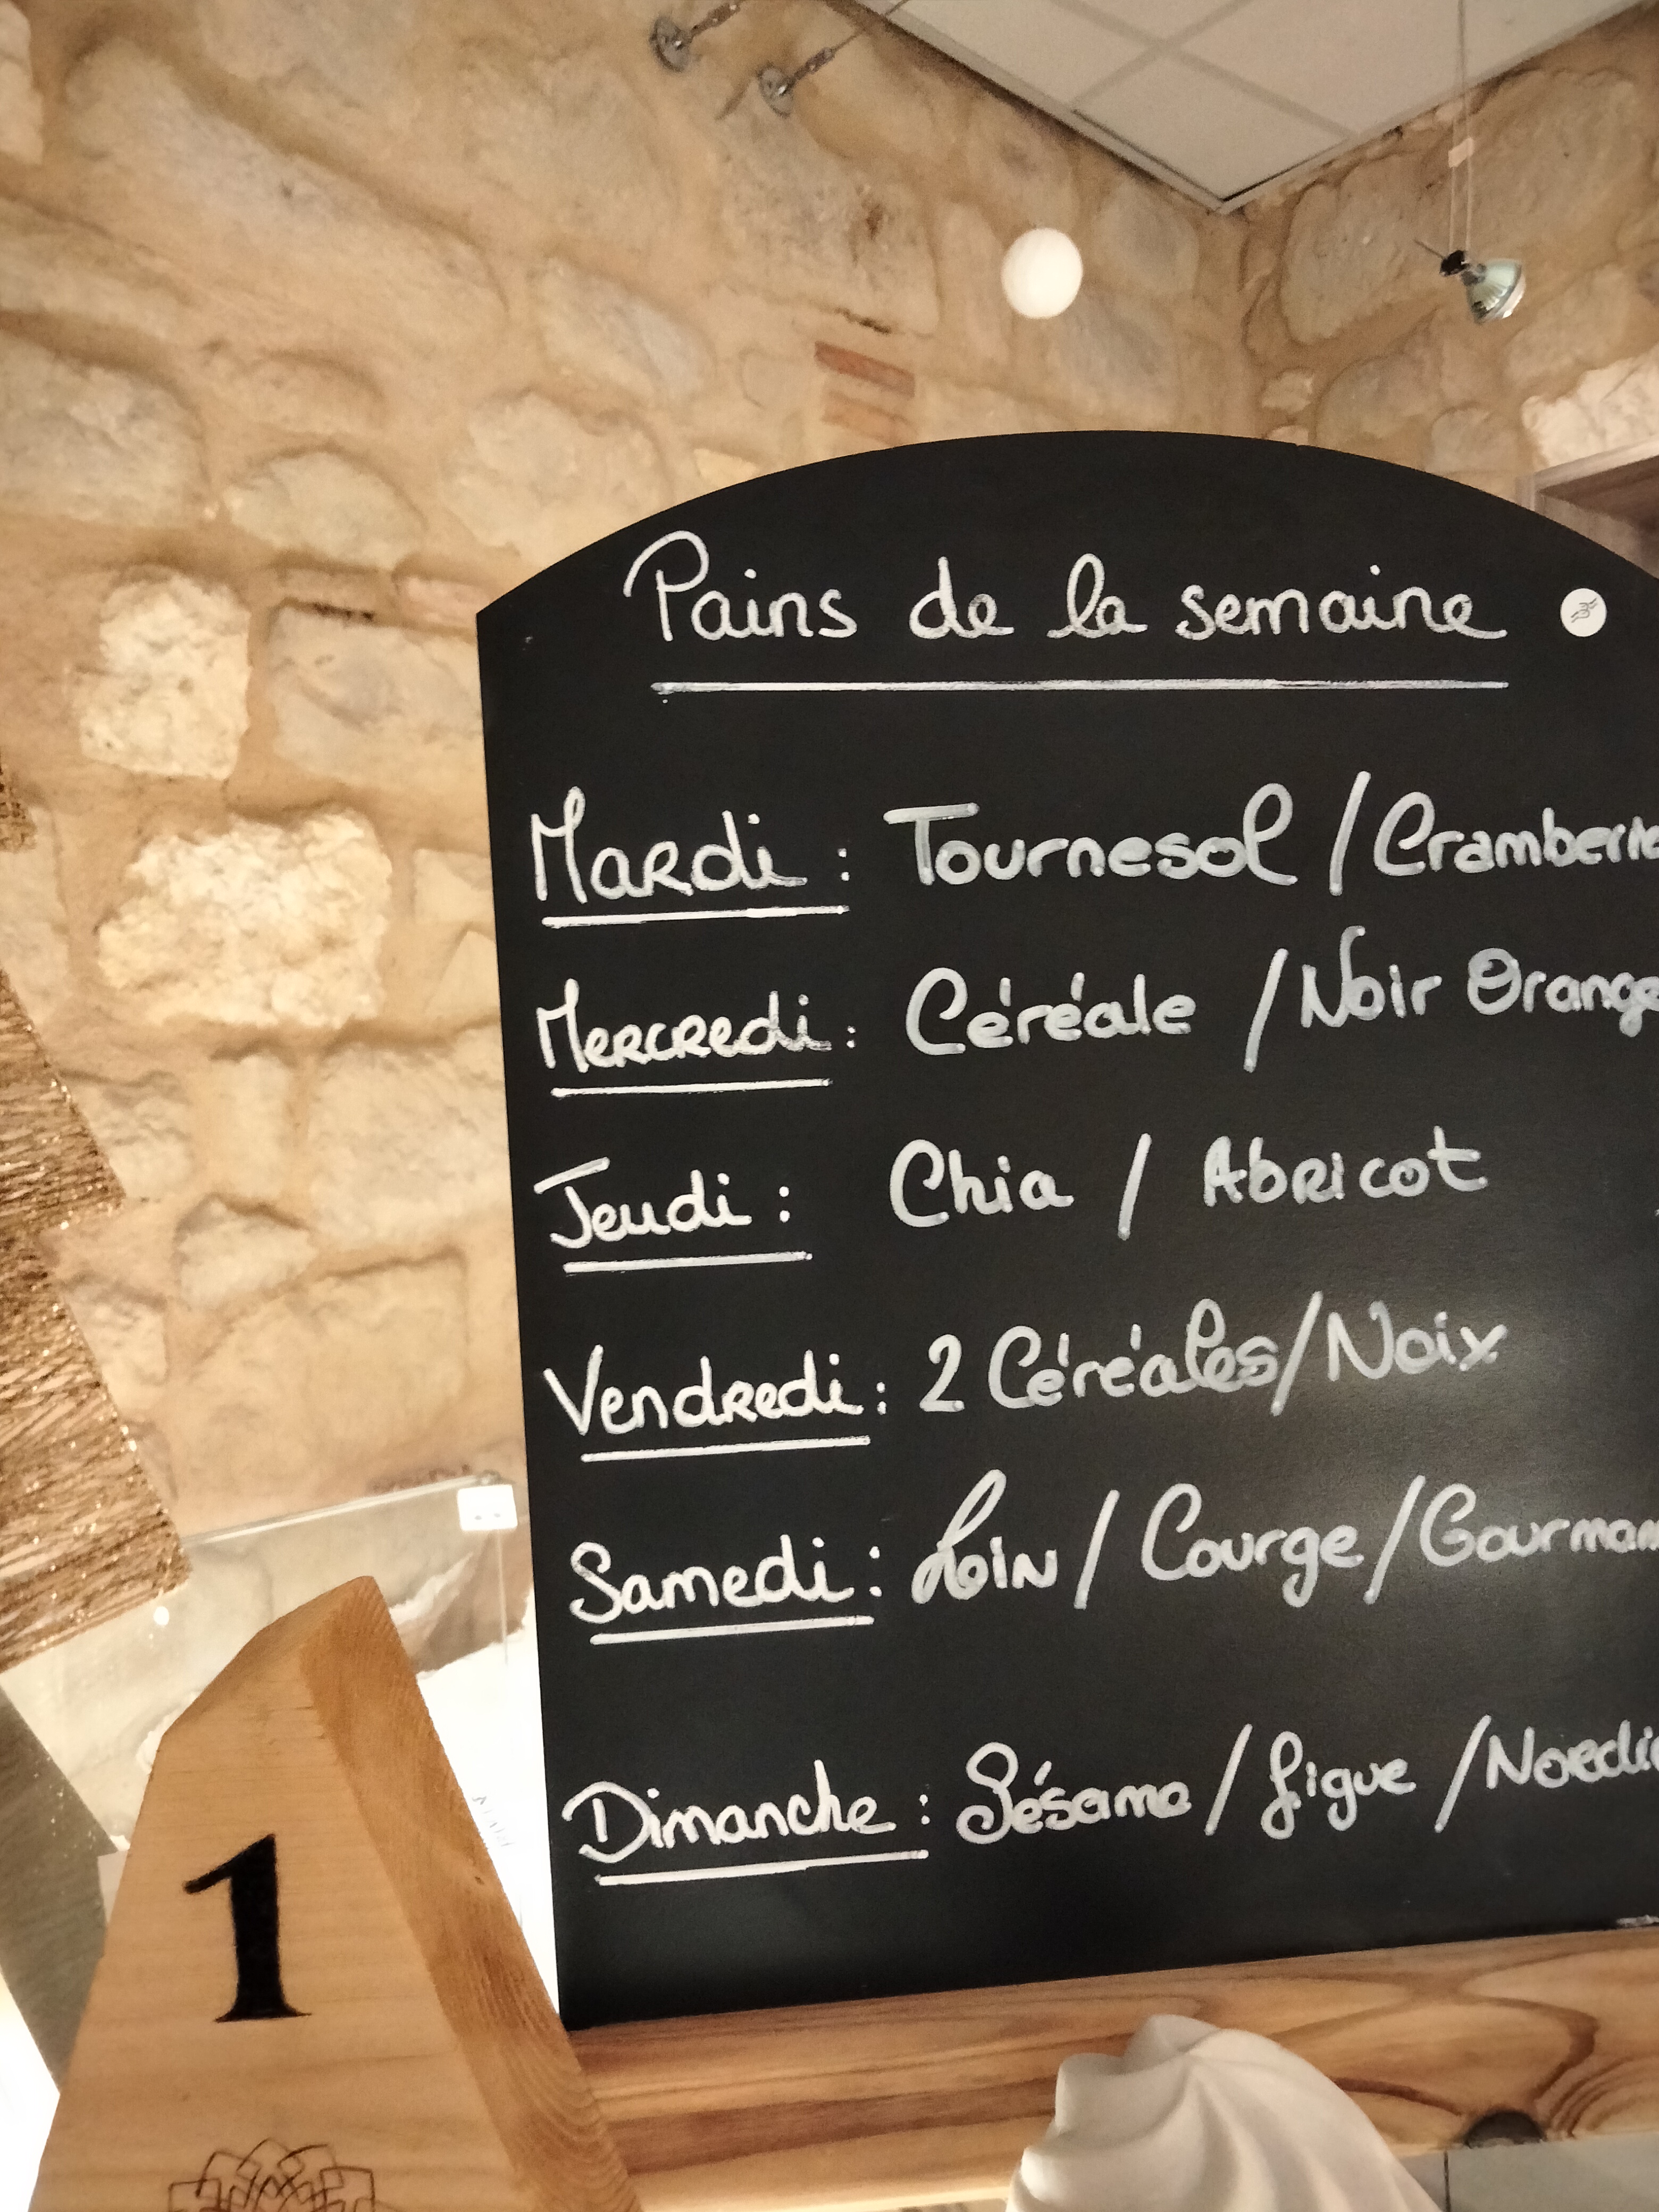 Pains de la semaine
Mardi : Tournesol / Cramberrie
Mercredi : Céréale / Noir Orange
Jeudi : Chia / Abricot
Vendredi : 2 Céréales / Noix
Samedi : Lin / Courge / Gourman
Dimanche : Sésame / figue / Nordic
1